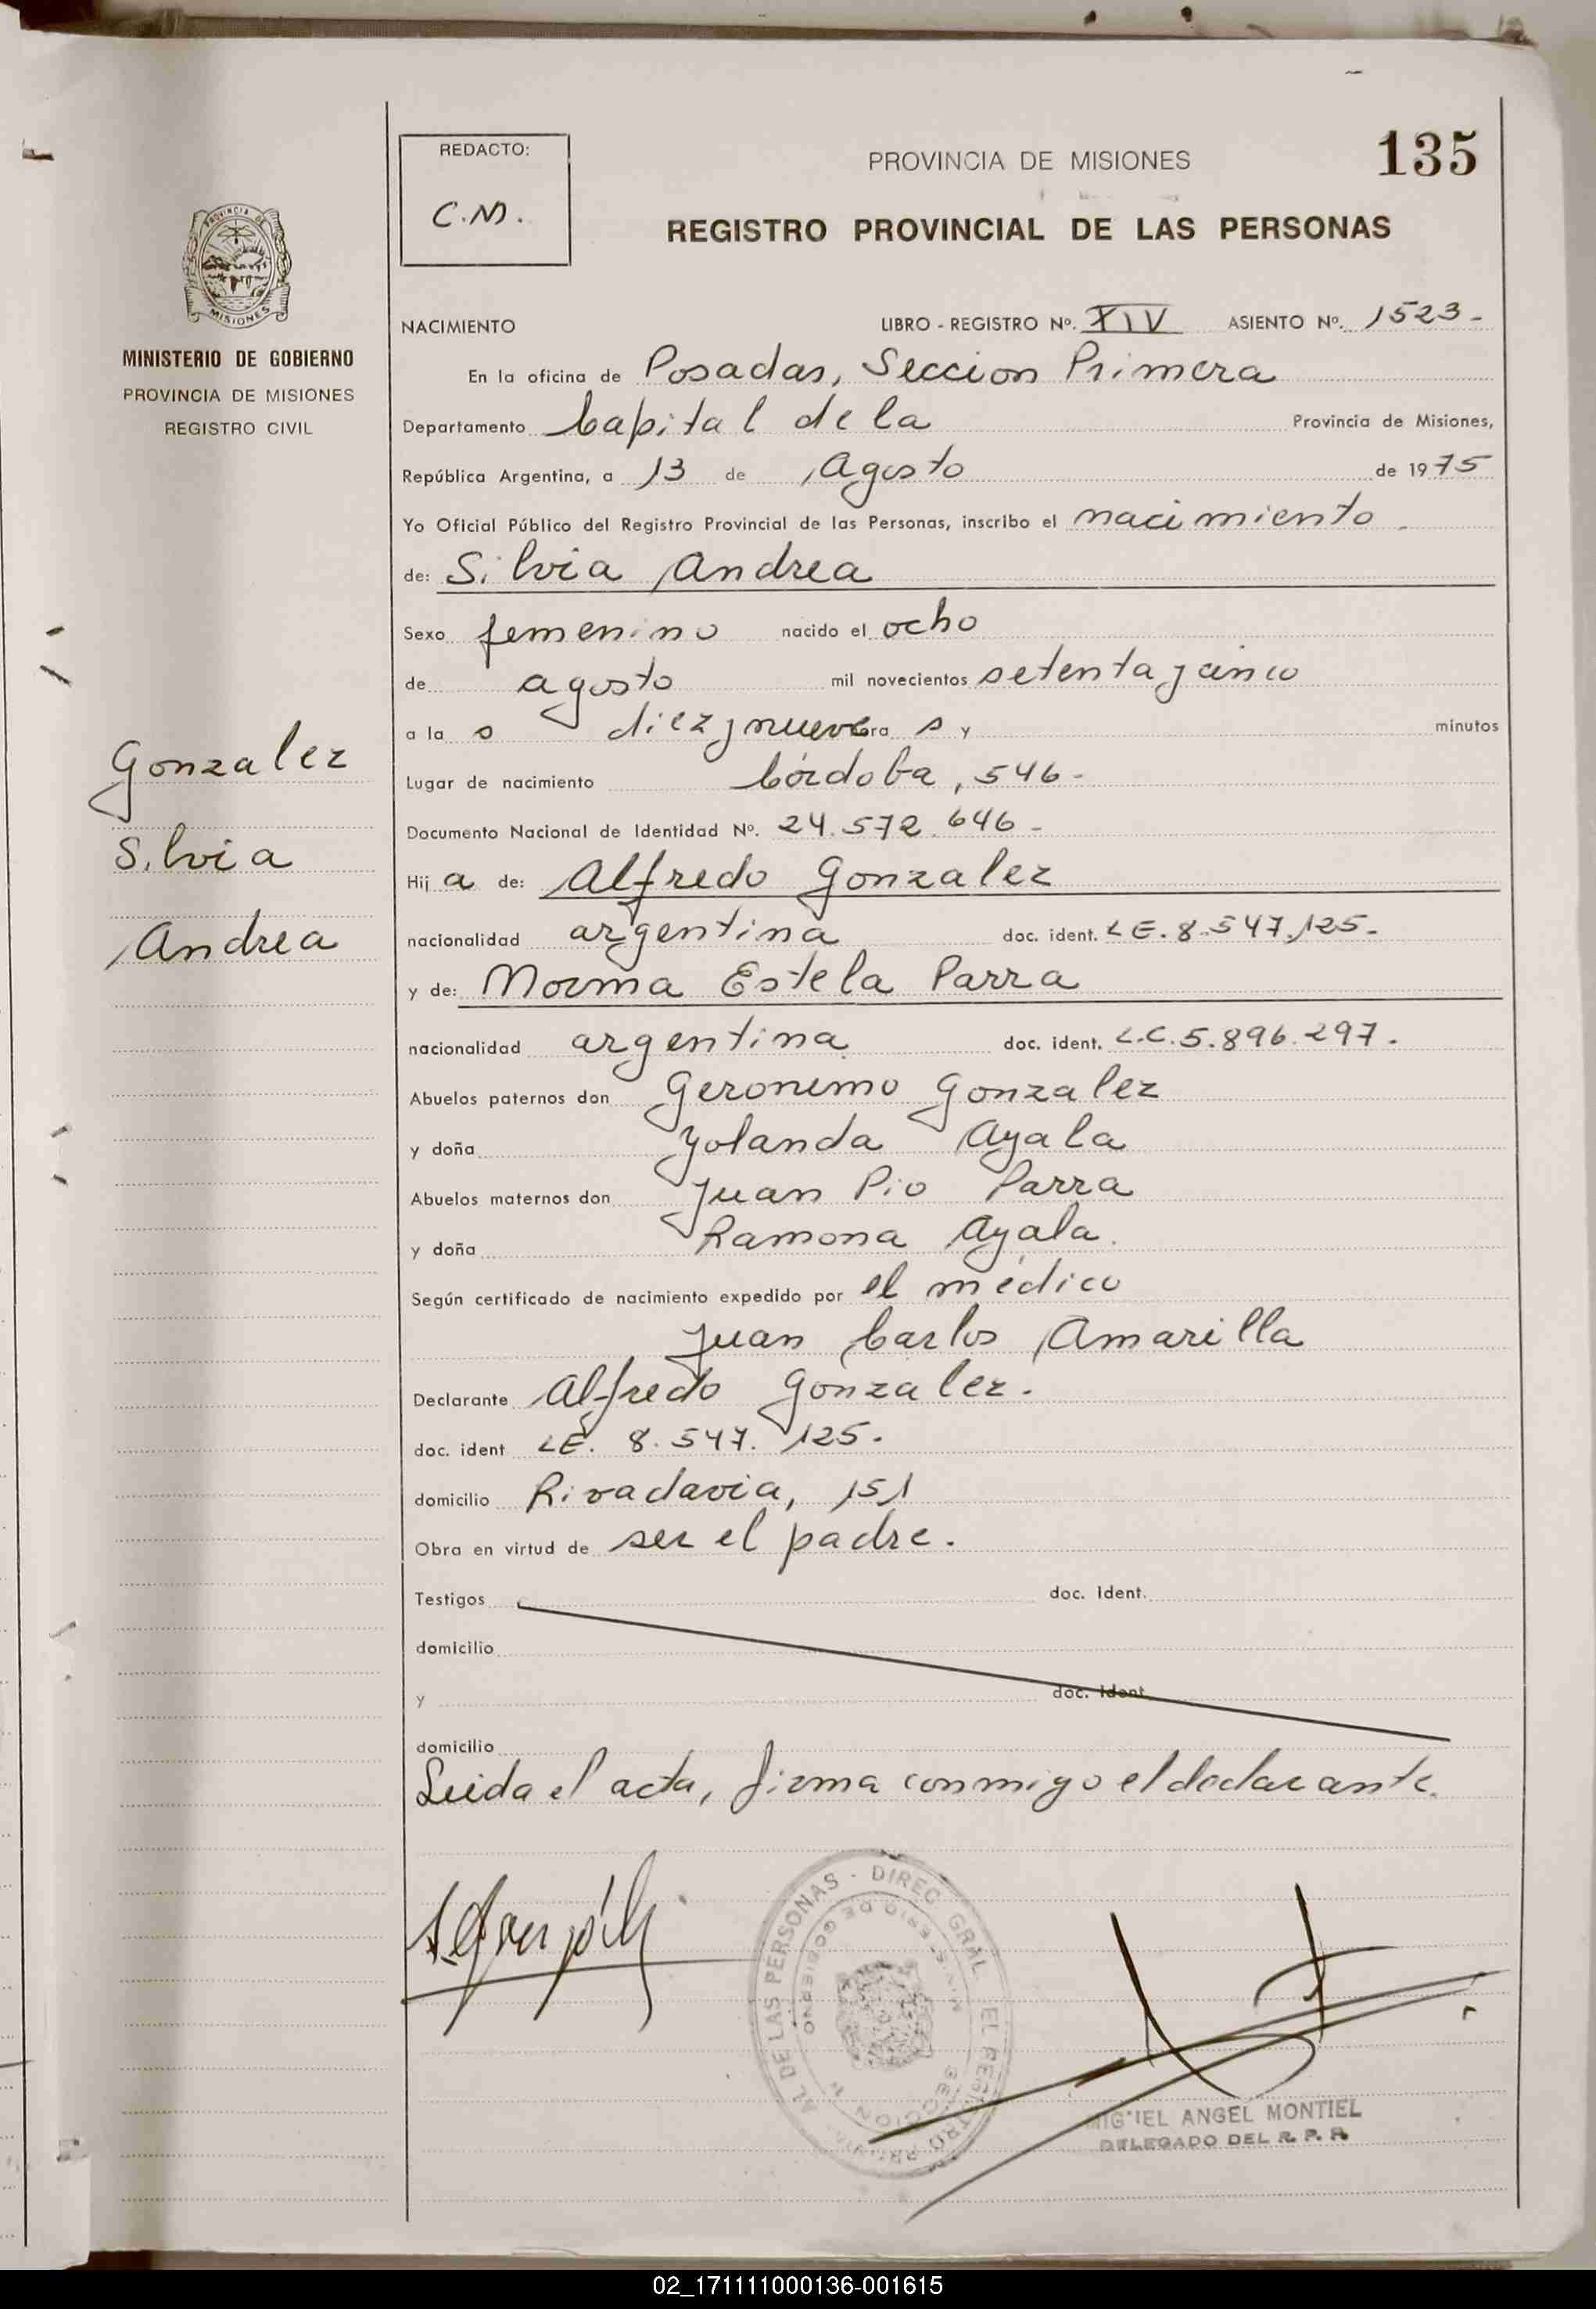 135
REDACTO:
C.M.
PROVINCIA DE MISIONES
REGISTRO PROVINCIAL DE LAS PERSONAS
PROVINCIA DE
MISIONES
MINISTERIO DE GOBIERNO
PROVINCIA DE MISIONES
REGISTRO CIVIL
Gonzalez
Silvia
Andrea
NACIMIENTO LIBRO - REGISTRO Nº. XIV ASIENTO Nº. 1523-
En la oficina de Posadas, Seccion Primera
Departamento Capital de la Provincia de Misiones,
República Argentina, a 13 de Agosto de 1975
Yo Oficial Público del Registro Provincial de las Personas, inscribo el nacimiento
de: Silvia Andrea
Sexo femenino nacido el ocho
de agosto mil novecientos setenta y cinco
a la s diez y nueve ora s y minutos
Lugar de nacimiento Córdoba, 546-
Documento Nacional de Identidad Nº. 24.572.646-
Hij a de: Alfredo Gonzalez
nacionalidad argentina doc. ident. LE. 8.547.125-
y de: Norma Estela Parra
nacionalidad argentina doc. ident. L.C. 5.896.297.
Abuelos paternos don Geronimo Gonzalez
y doña Yolanda Ayala
Abuelos maternos don Juan Pio Parra
y doña Ramona Ayala.
Según certificado de nacimiento expedido por el médico
Juan Carlos Amarilla
Declarante Alfredo Gonzalez.
doc. ident LE. 8.547.125.
domicilio Rivadavia, 151
Obra en virtud de ser el padre.
Testigos doc. Ident.
domicilio
y doc. Ident.
domicilio
Leida el acta, firma conmigo el declarante.
AL DE LAS PERSONAS - DIREC. GRAL. EL REGISTRO
DE GOBIERNO
SECCION 1ª
MIGUEL ANGEL MONTIEL
DELEGADO DEL R. P. P.
02_171111000136-001615